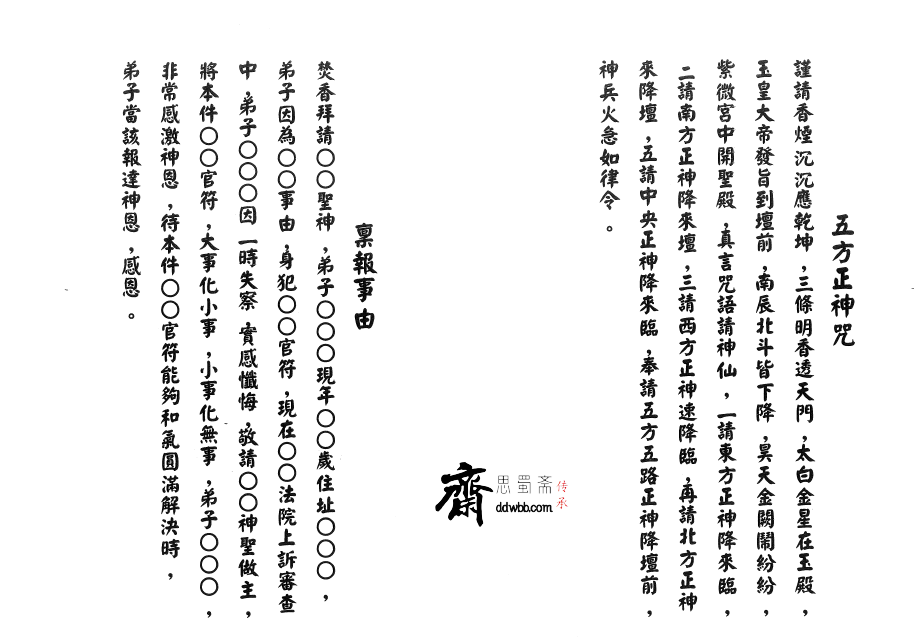 五方正神咒
謹請香煙沉沉應乾坤,三條明香透天門,太白金星在玉殿,
玉皇大帝發旨到壇前,南辰北斗皆下降,昊天金闕鬧紛紛,
紫微宮中開聖殿,真言咒語請神仙,一請東方正神降來臨,
二請南方正神降來壇,三請西方正神速降臨,再請北方正神
來降壇,五請中央正神降來臨,奉請五方五路正神降壇前,
神兵火急如律令。
稟報事由
焚香拜請〇〇聖神,弟子〇〇〇現年〇〇歲住址〇〇〇,
弟子因為〇〇事由,身犯〇〇官符,現在〇〇法院上訴審查
中,弟子〇〇〇因一時失察,實感懺悔,敬請〇〇神聖做主,
將本件〇〇官符,大事化小事,小事化無事,弟子〇〇〇,
非常感激神恩,待本件〇〇官符能夠和氣圓滿解決時,
弟子當該報達神恩,感恩。
齋
思蜀斋
ddwbb.com
传承